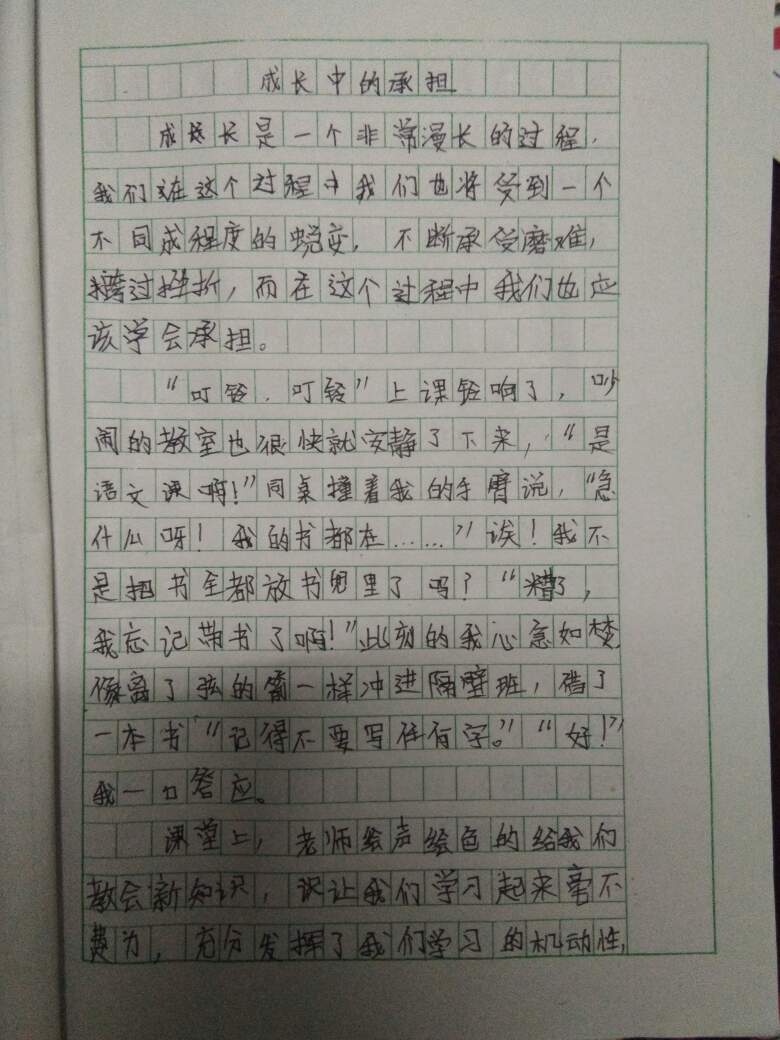 成长中的承担
成长是一个非常漫长的过程.
我们在这个过程中我们也将受到一个
不同成程度的蜕变，不断承受磨难，
跨过挫折，而在这个过程中我们也应
该学会承担。
“叮铃．叮铃”上课铃响了，吵
闹的教室也很快就安静了下来，“是
语文课啊！”同桌撞着我的手臂说，“急
什么呀！我的书都在……”诶！我不
是把书全都放书兜里了吗？“糟了，
我忘记带书了啊！”此刻的我心急如焚
像离了弦的箭一样冲进隔壁班，借了
一本书“记得不要写任何字。”“好！”
我一口答应。
课堂上，老师绘声绘色的给我们
教会新知识，识让我们学习起来毫不
费力，充分发挥了我们学习的机动性，